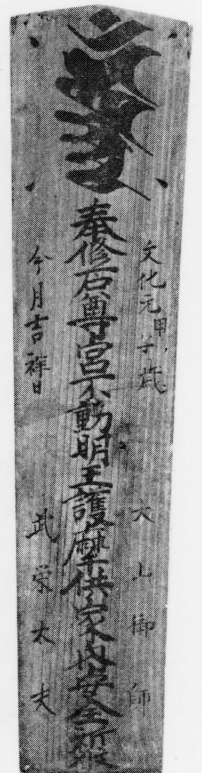 文化元甲子歳 大山御師
奉修石尊宮不動明王護摩供家内安全祈
今月吉祥日 武栄太夫